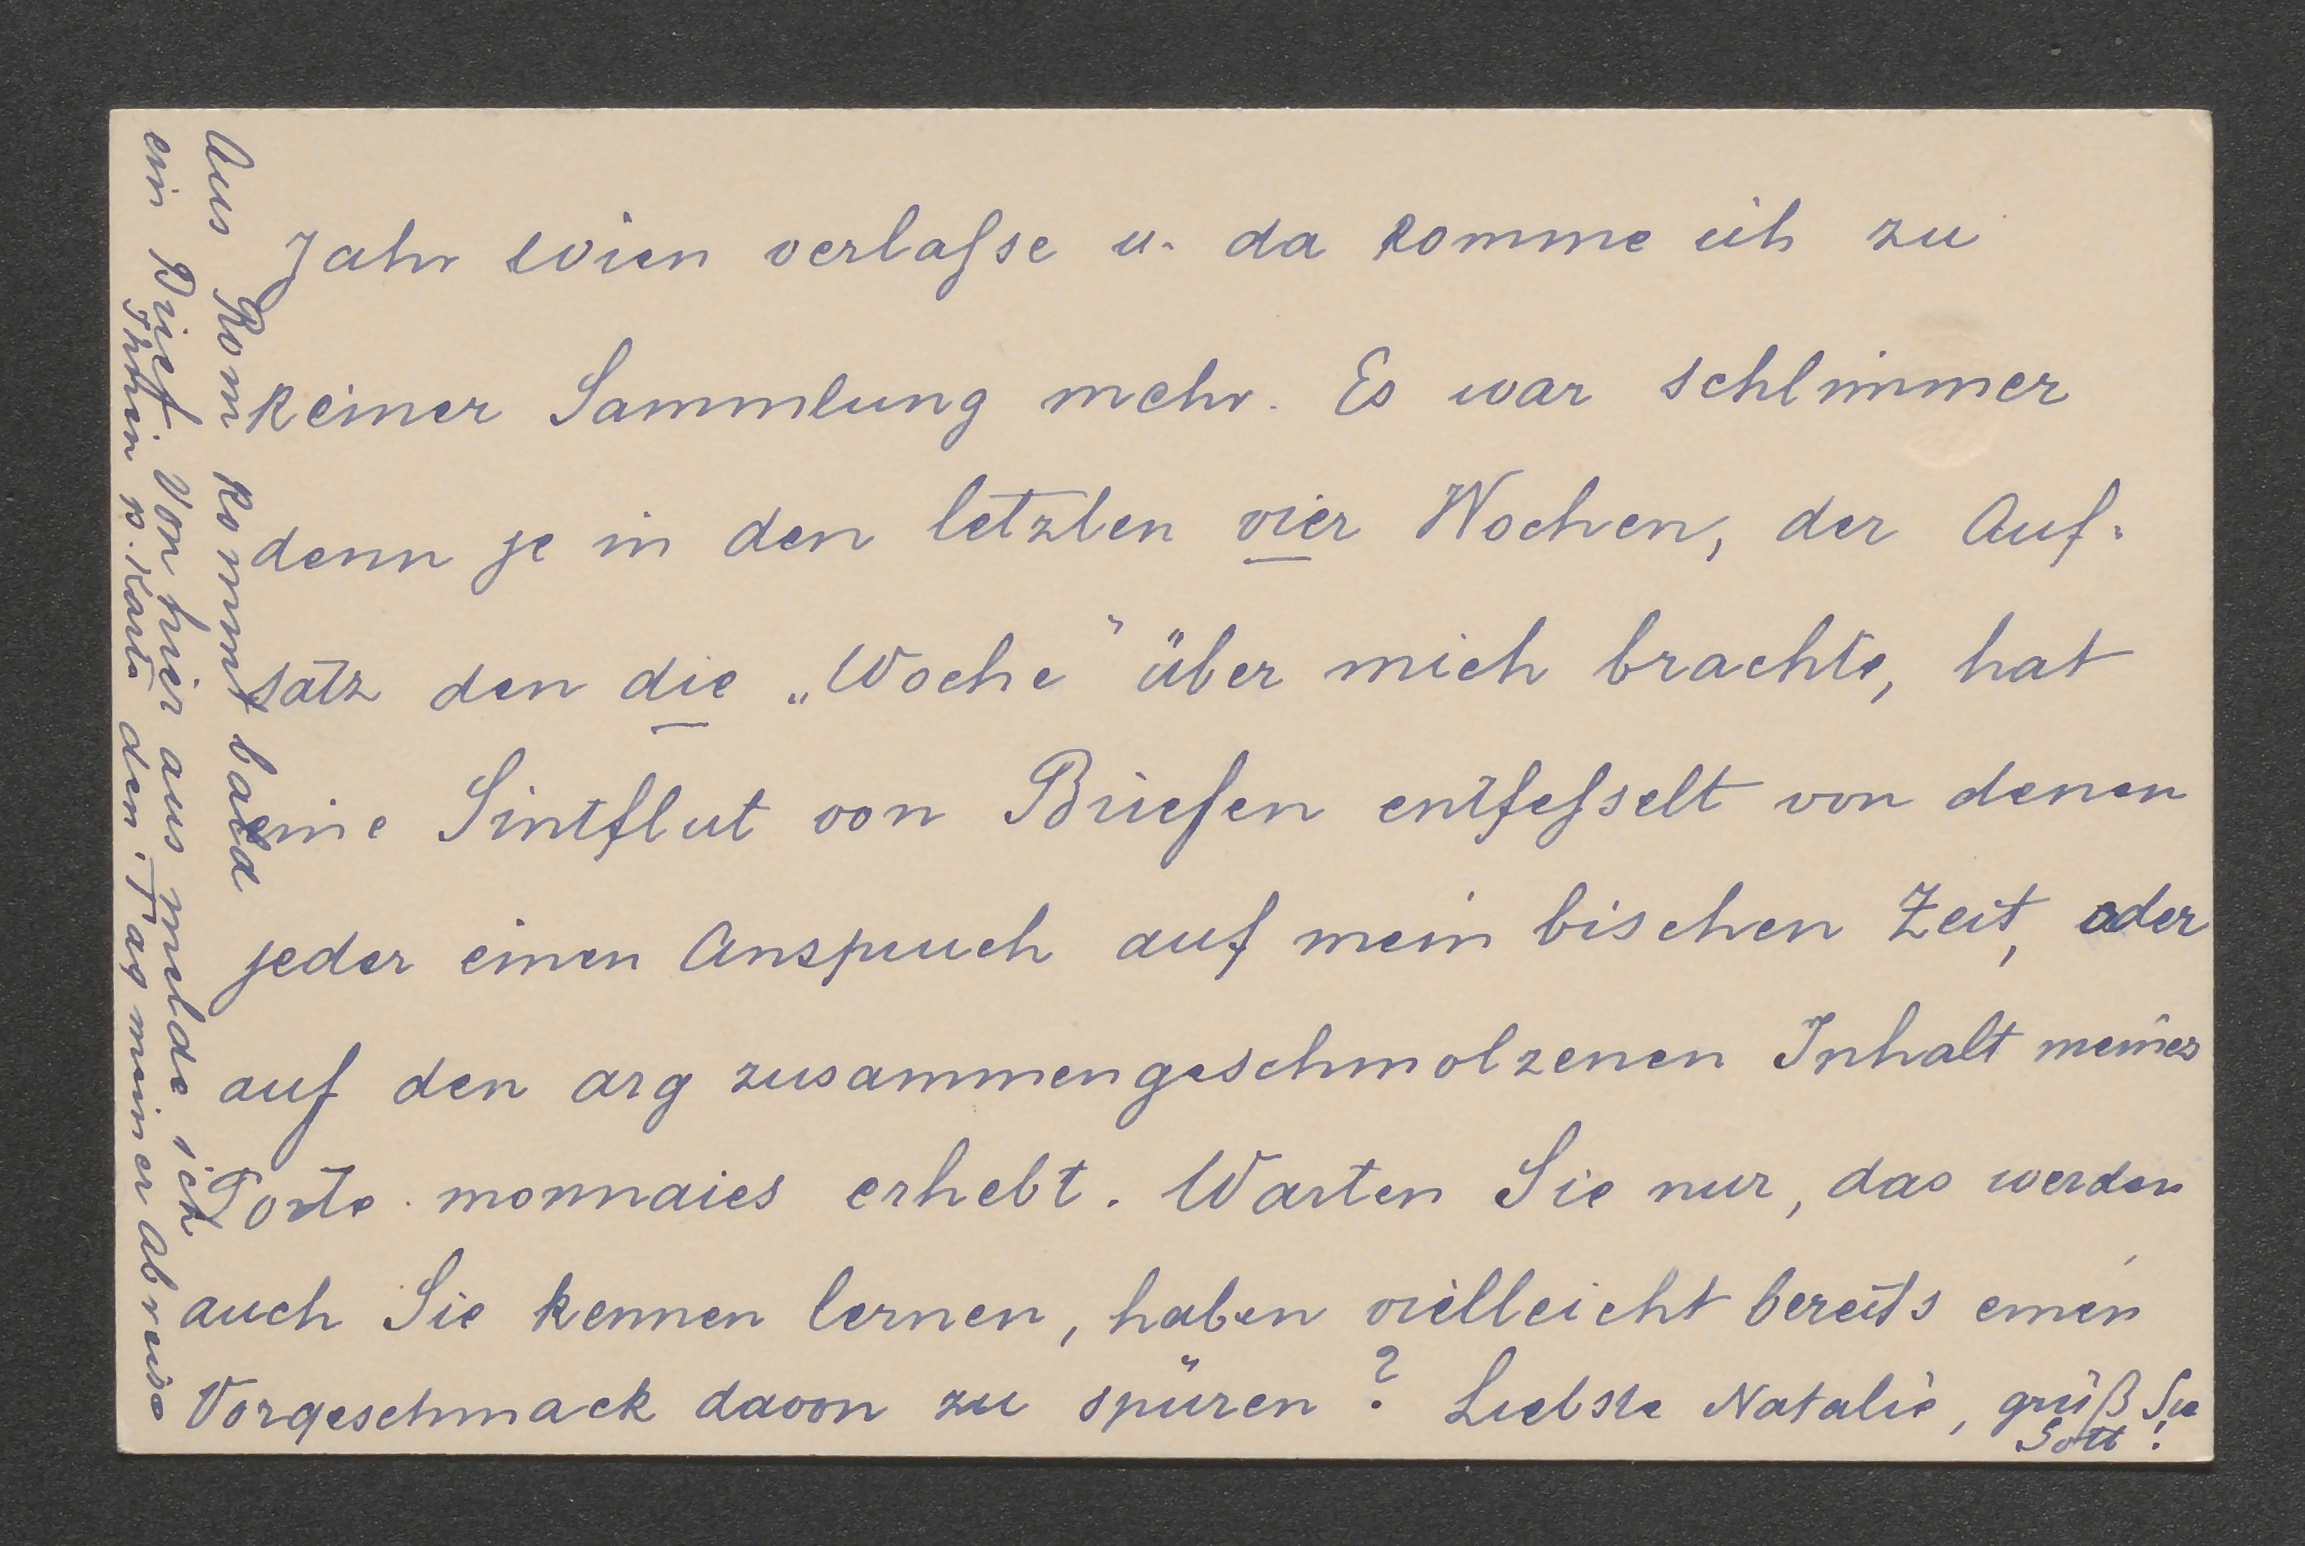 Jahr Wien verlaſse u. da komme ich zu
keiner Sammlung mehr. Es war schlimmer
denn je in den letzten vier Wochen, der Auf-
satz den die „Woche" über mich brachte, hat
eine Sintflut von Briefen entfeſselt von denen
jeder einen Anspruch auf mein bischen Zeit, oder
auf den arg zusammengeschmolzenen Inhalt meines
Porte-monnaies erhebt. Warten Sie nur, das werden
auch Sie kennen lernen, haben vielleicht bereits einen
Vorgeschmack davon zu spüren? Liebste Natalie, grüß Sie
Gott!
Aus Rom kommt bald
ein Brief. Von hier aus melde ich
Ihnen p. Karte den Tag meiner Abreise